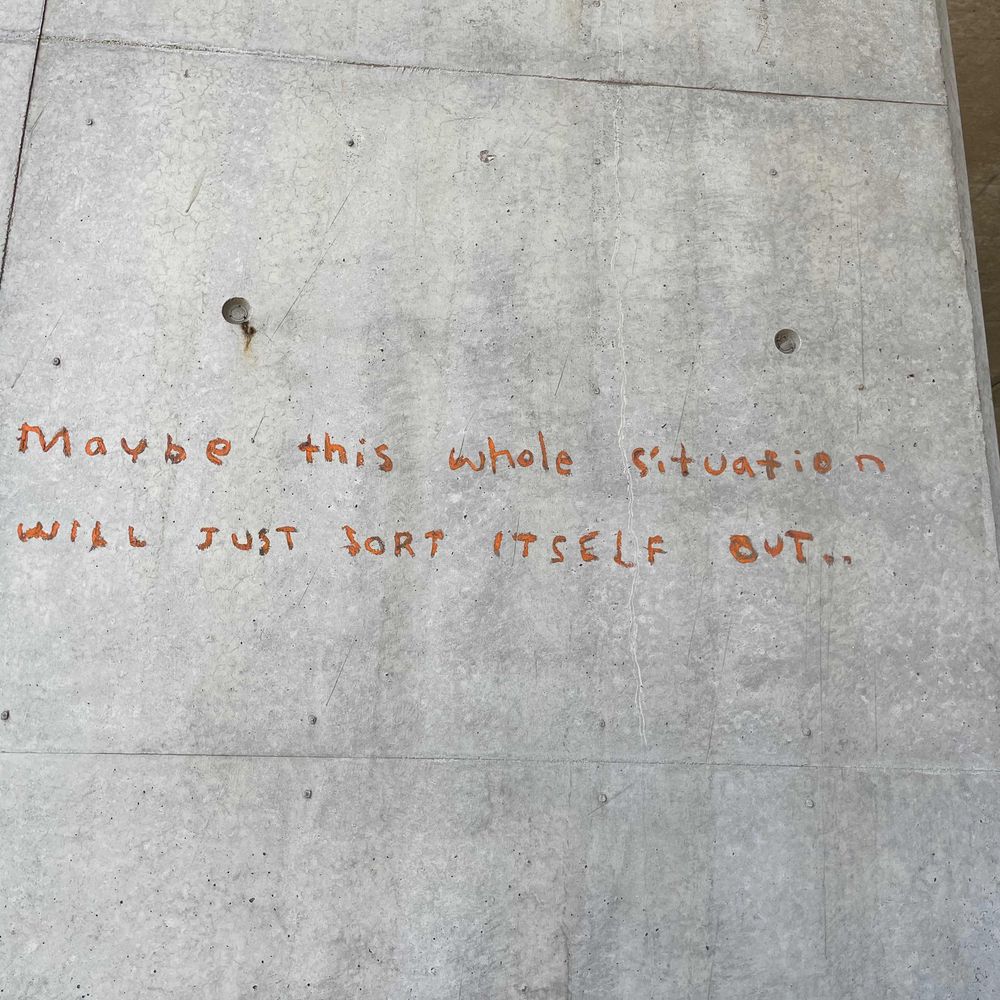 Maybe this whole situation
WILL JUST SORT ITSELF OUT..